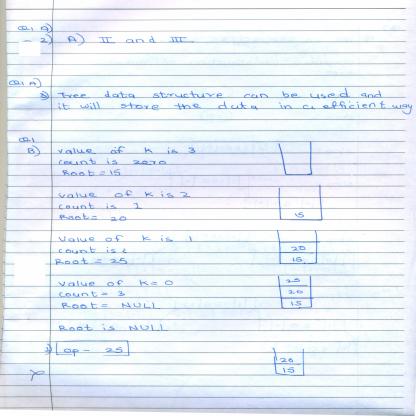 Q1 A)
- 2) A) II and III
Q1 A)
3) Tree data structure can be used and
it will store the data in a efficient way
Q1
B) value of K is 3
count is zero
Root = 15
value of K is 2
count is 1
Root = 20
15
Value of K is 1
count is 2
Root = 25
20
15
value of K = 0
count = 3
Root = NULL
25
20
15
Root is NULL
1) op - 25
20
15